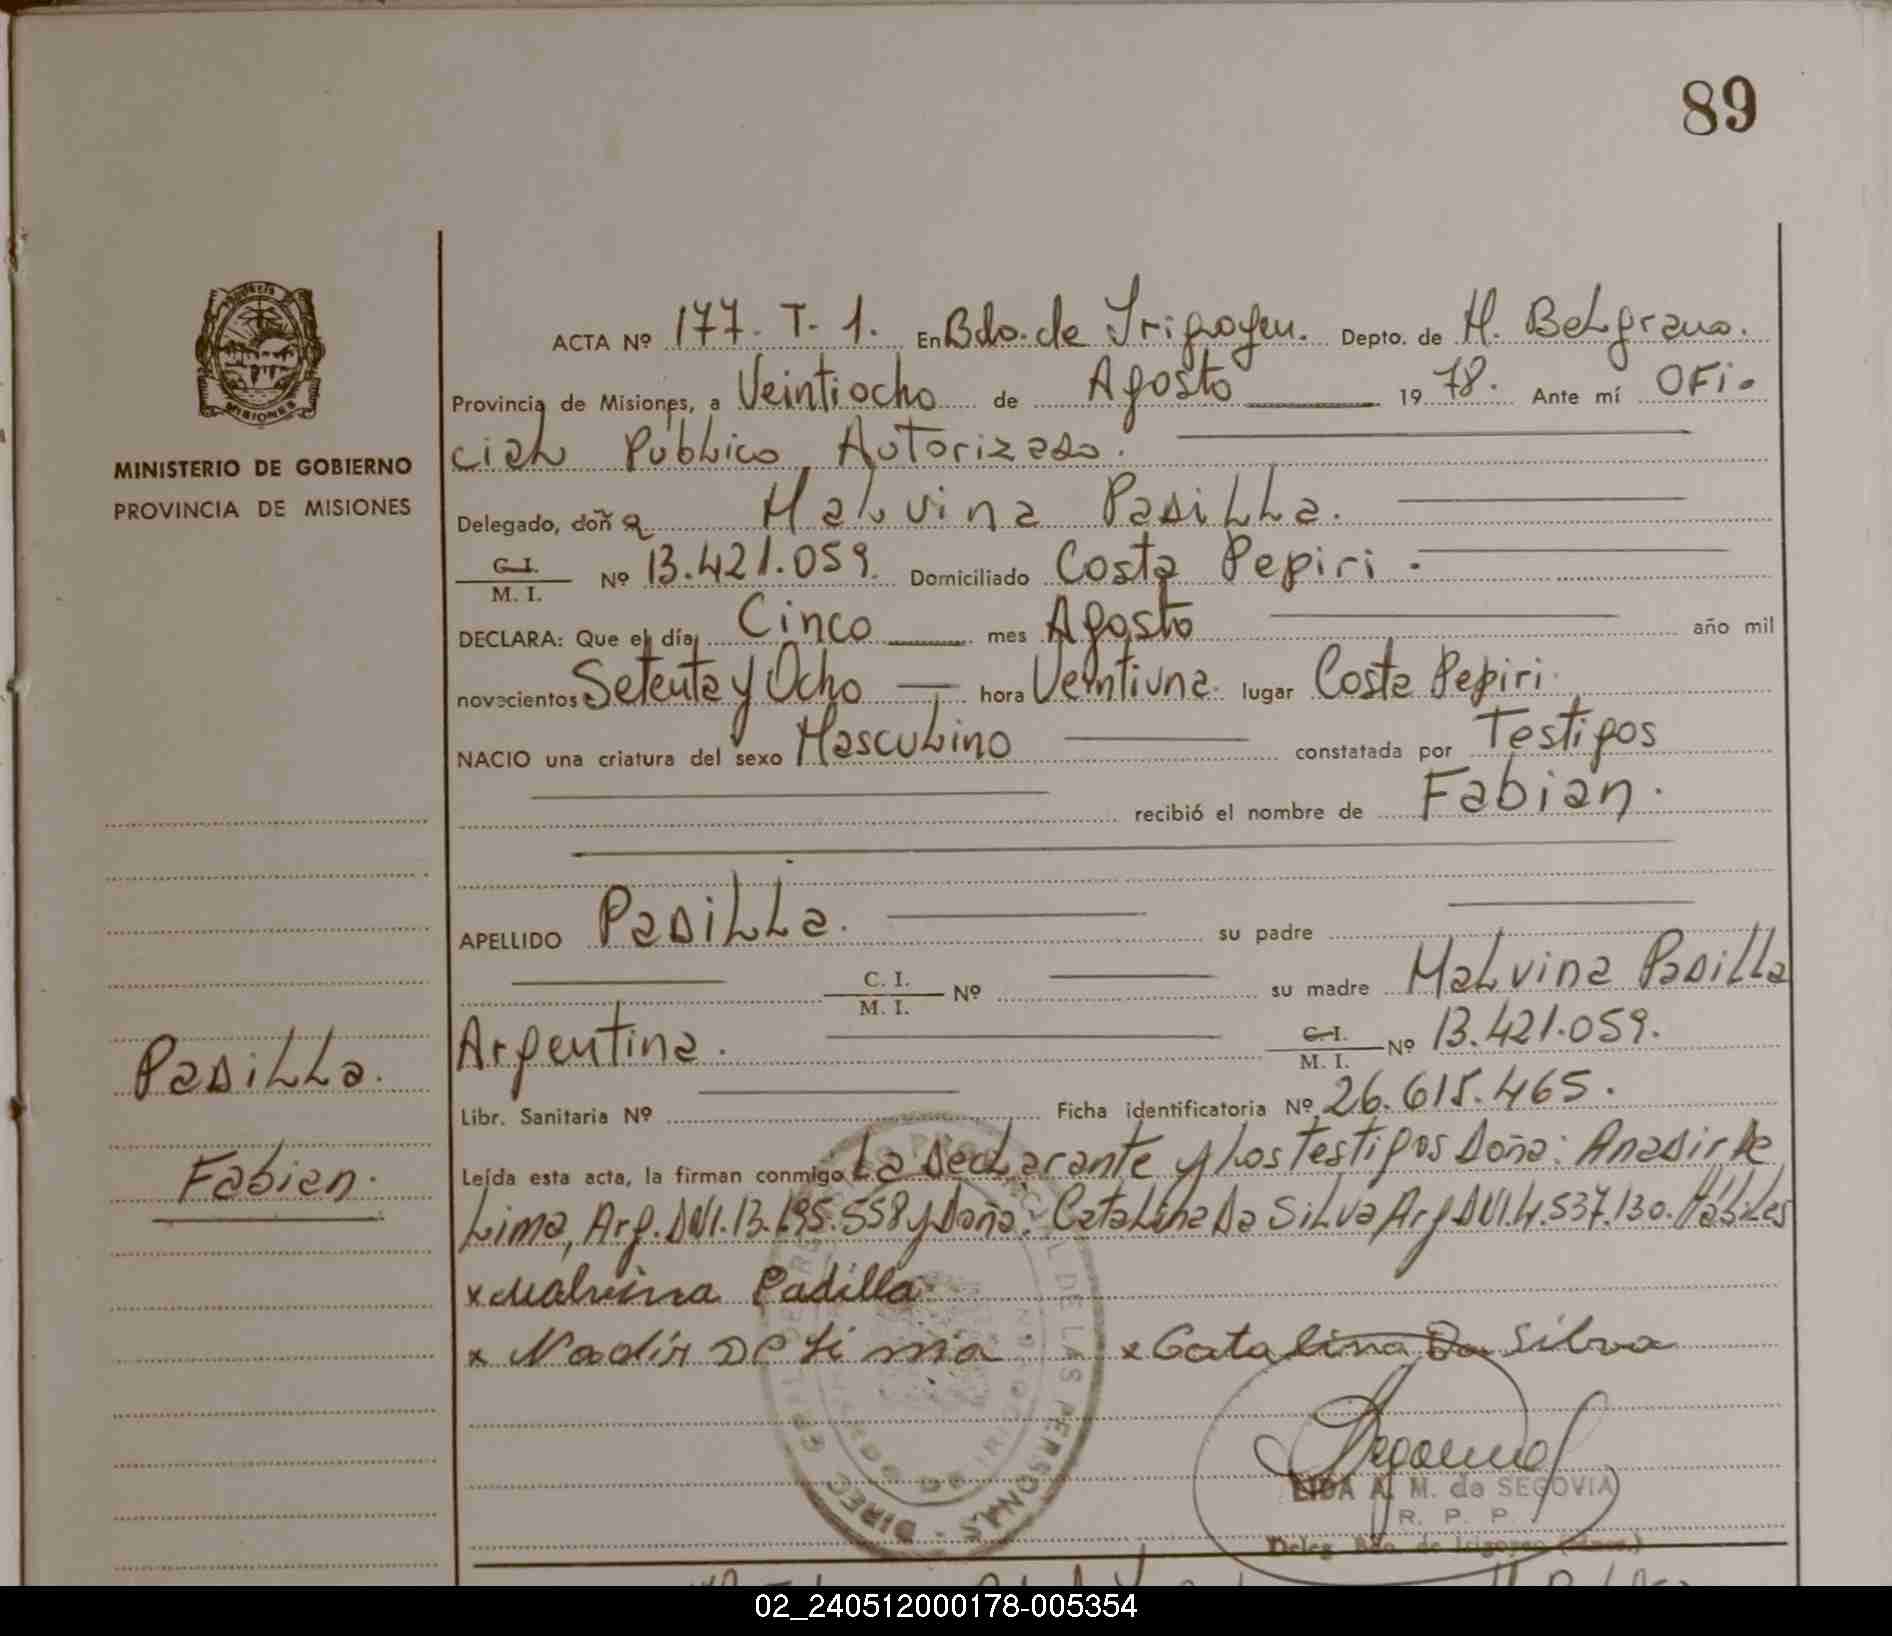 89
ACTA Nº 177. T. 1. En Bdo. de Irigoyen. Depto. de M. Belgrano.
Provincia de Misiones, a Veintiocho de Agosto 19 78. Ante mí OFi.
MINISTERIO DE GOBIERNO
PROVINCIA DE MISIONES
cial Público Autorizado.
Delegado, doña Malvina Padilla.
C. I. / M. I. Nº 13.421.059. Domiciliado Costa Pepiri.
DECLARA: Que el día Cinco mes Agosto año mil
novecientos Setenta y Ocho hora Veintiuna. lugar Costa Pepiri.
NACIO una criatura del sexo Masculino constatada por Testigos
recibió el nombre de Fabian.
APELLIDO Padilla. su padre
C. I. / M. I. Nº su madre Malvina Padilla
Argentina. C. I. / M. I. Nº 13.421.059.
Padilla.
Libr. Sanitaria Nº Ficha identificatoria Nº 26.615.465.
Fabian.
Leída esta acta, la firman conmigo La declarante y los Testigos Doña: Anadir De
Lima, Arg. DNI. 13.695.558 y Doña: Catalina Da Silva Arg DNI. 4.537.130. Hábiles
x Malvina Padilla
x Nadir De Lima x Catalina Da Silva
LIDA A. M. de SEGOVIA
R. P. P.
Deleg. Bdo. de Irigoyen (Mnes.)
DE LAS PERSONAS DIREC
02_240512000178-005354